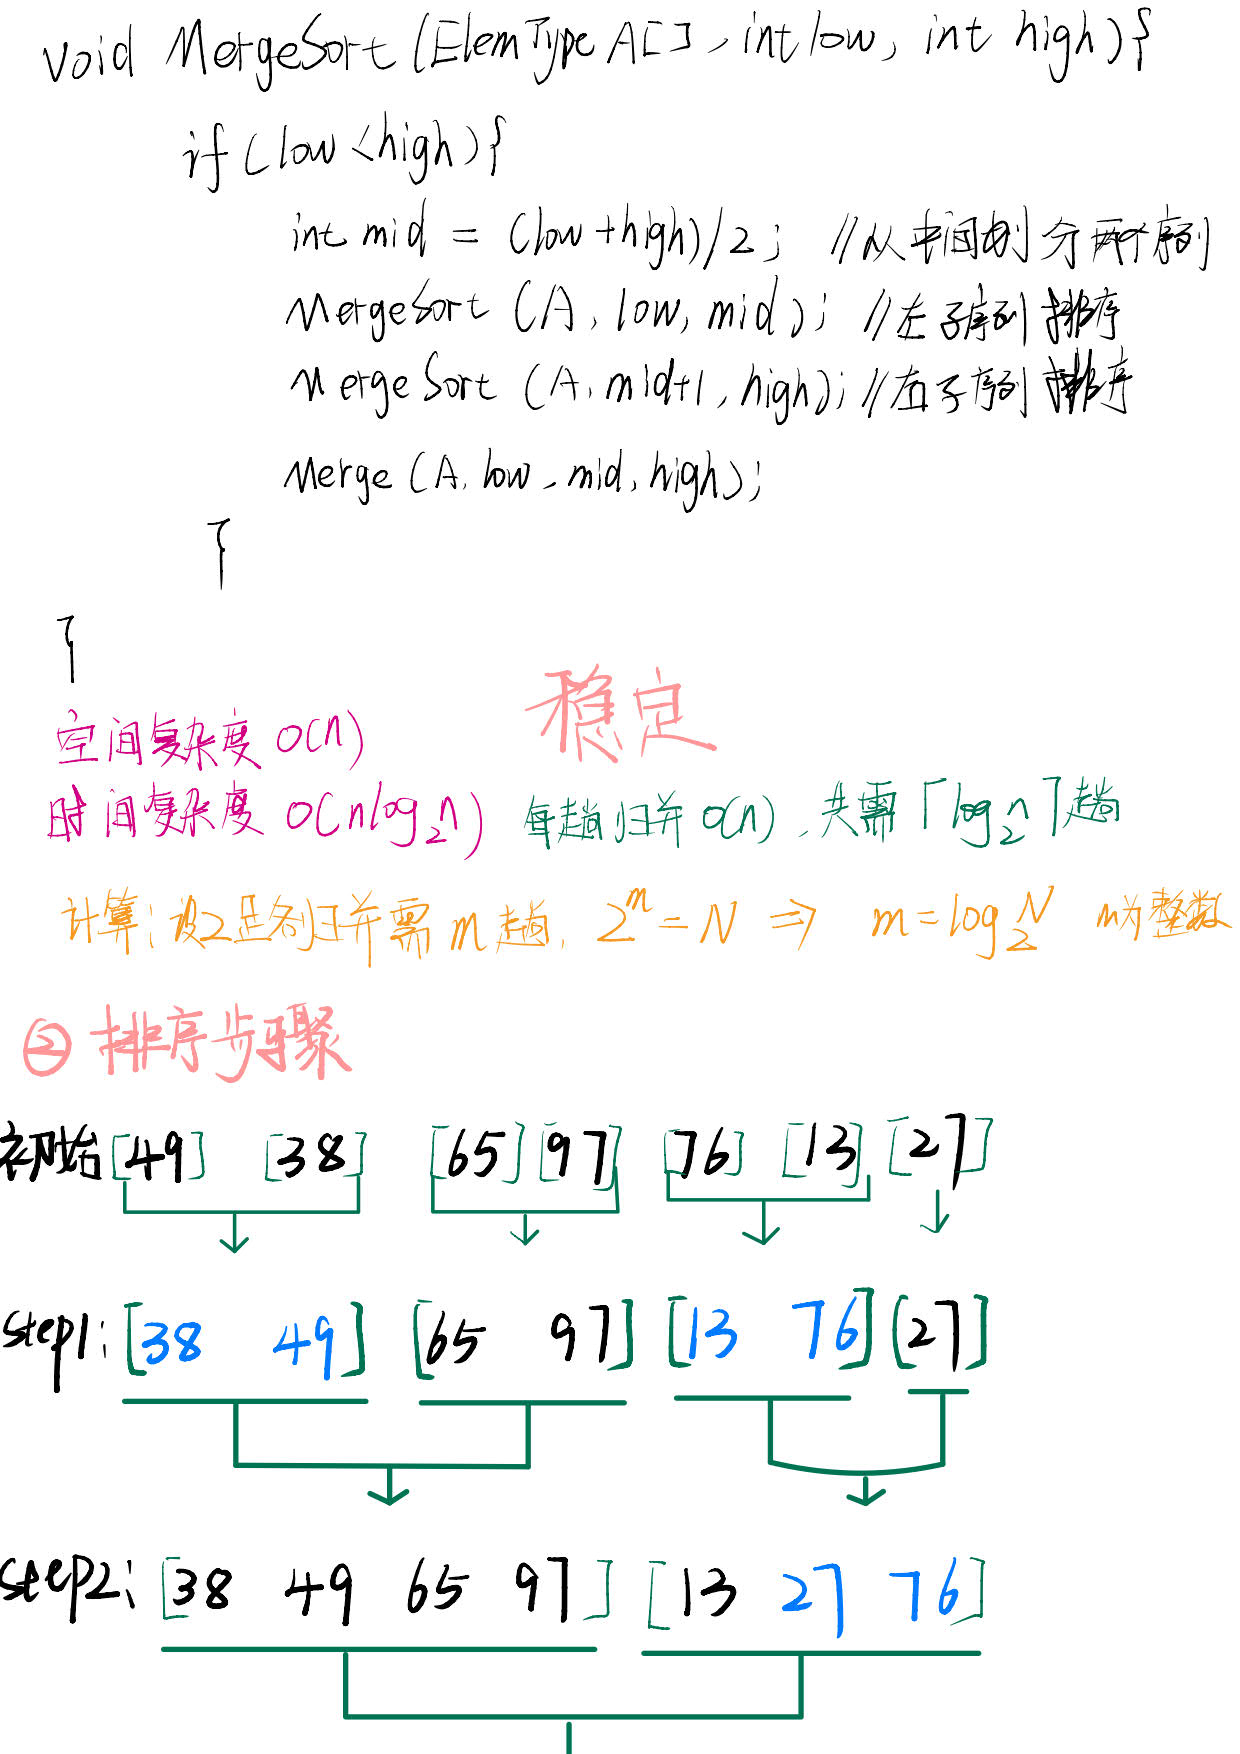 void MergeSort (ElemType A[], int low, int high){
if (low < high){
int mid = (low + high)/2; //从中间划分两个序列
MergeSort (A, low, mid); //左子序列排序
MergeSort (A, mid+1, high); //右子序列排序
Merge (A, low, mid, high);
}
}
稳定
空间复杂度 O(n)
时间复杂度 O(nlog₂n) 每趟归并 O(n), 共需⌈log₂n⌉趟
计算: 设2路归并需m趟, 2ᵐ = N ⇒ m = log₂N m为整数
② 排序步骤
初始 [49] [38] [65] [97] [76] [13] [27]
step1: [38 49] [65 97] [13 76] [27]
step2: [38 49 65 97] [13 27 76]